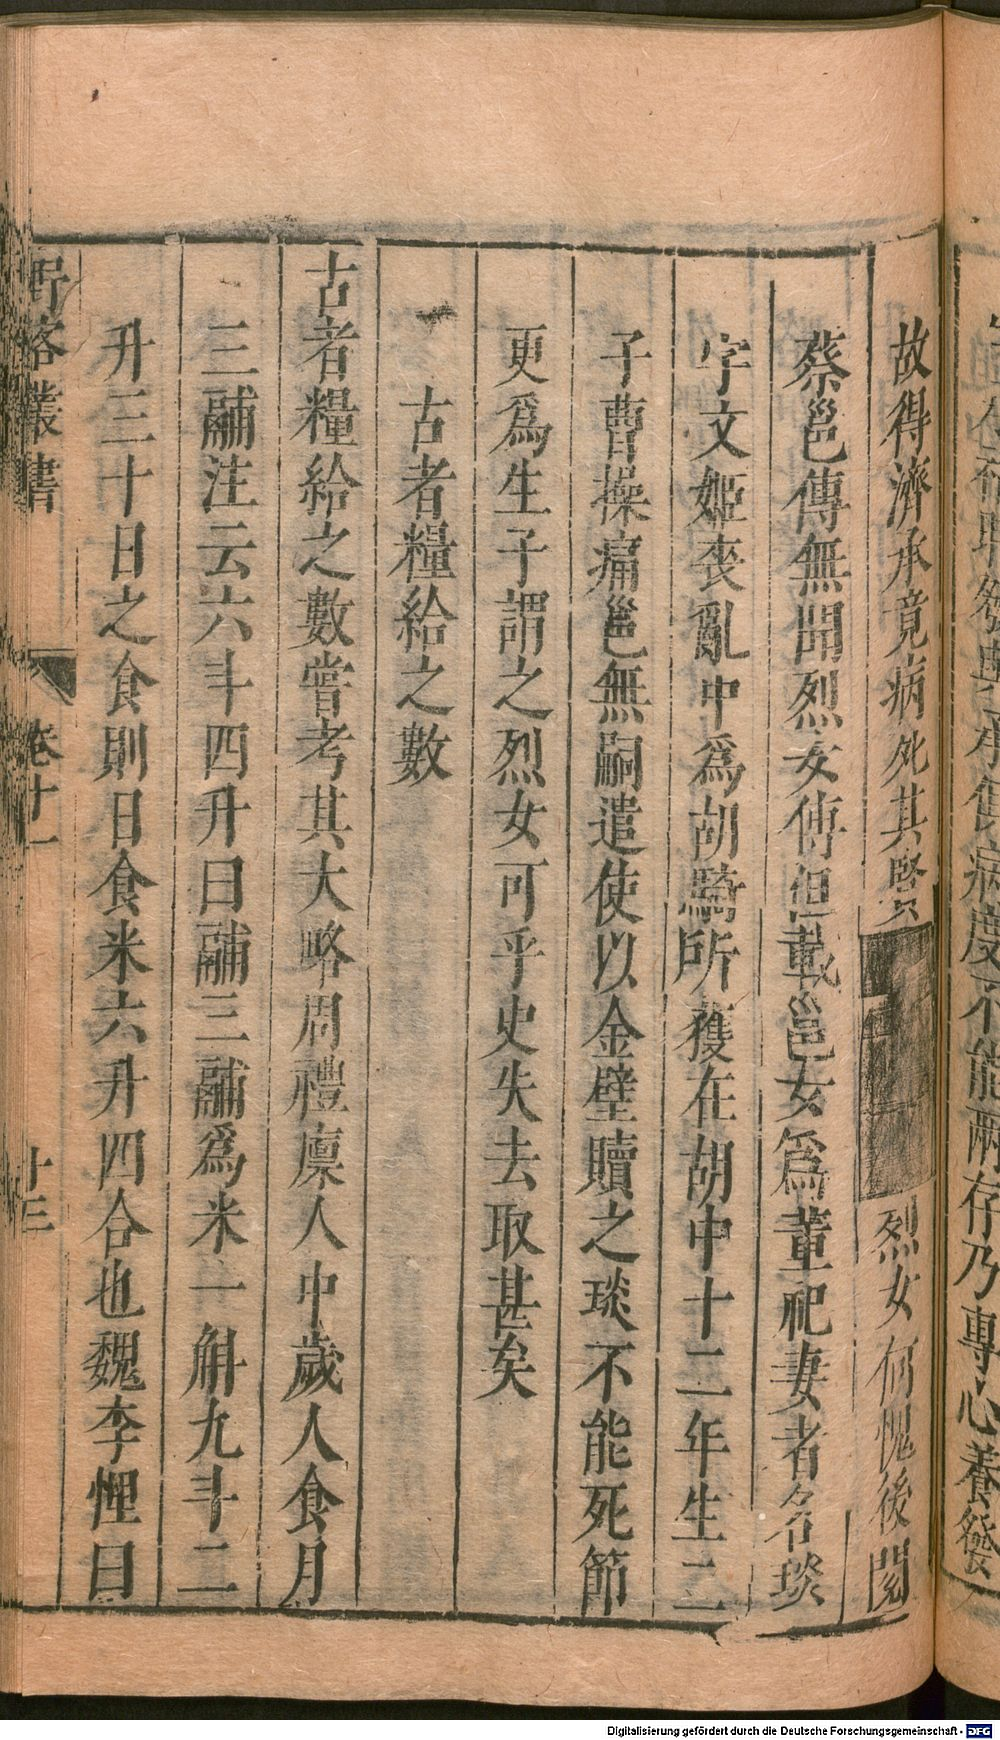 故得濟承竟病死其賢
烈女何愧後閱
蔡邕傳無開烈女傳但載邕女爲董祀妻者名琰
字文姬喪亂中爲胡騎所獲在胡中十二年生二
子曹操痛邕無嗣遣使以金璧贖之琰不能死節
更爲生子謂之烈女可乎史失去取甚矣
古者糧給之數
古者糧給之數嘗考其大略周禮廩人中歲人食月
三鬴注云六斗四升曰鬴三鬴爲米一斛九斗二
升三十日之食則日食米六升四合也魏李悝曰
野客叢書
卷十一
廿三
病度不能兩存乃專心養發
Digitalisierung gefördert durch die Deutsche Forschungsgemeinschaft - DFG